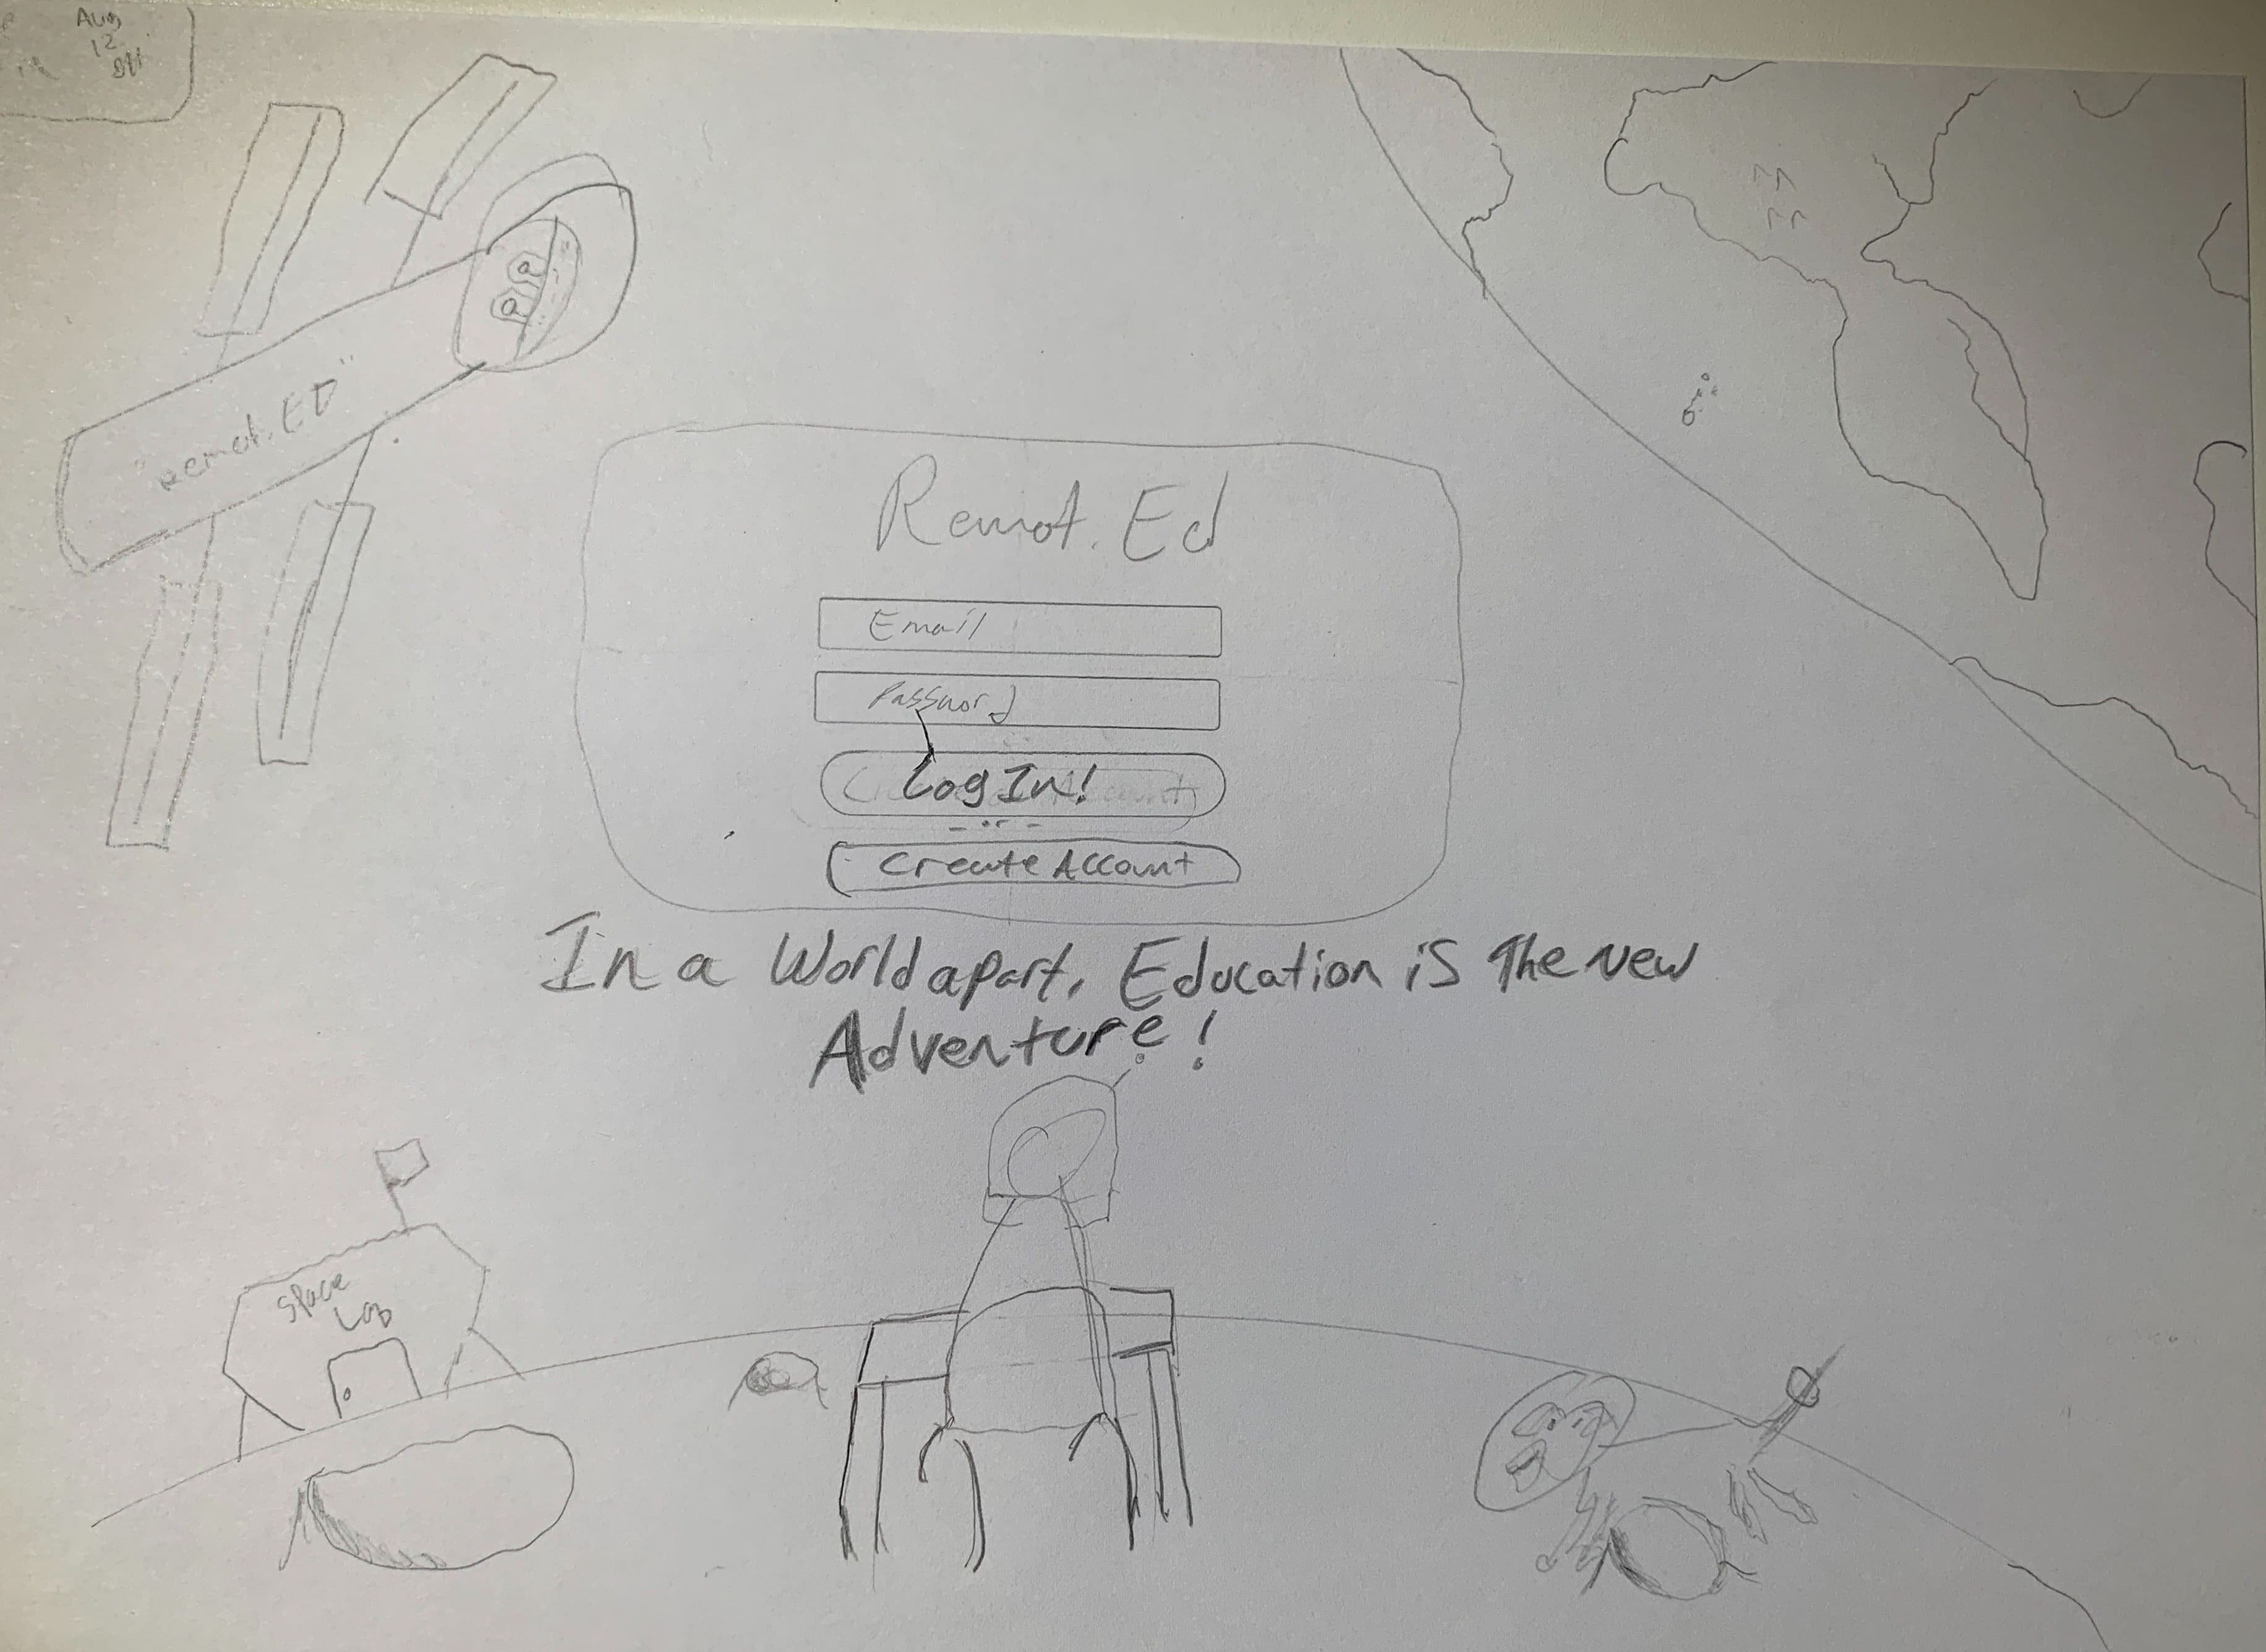 Aug
12
"Remot.ED"
Remot.Ed
Email
Password
Log In!
- or -
Create Account
In a World apart, Education is The New
Adventure!
Space
Lab